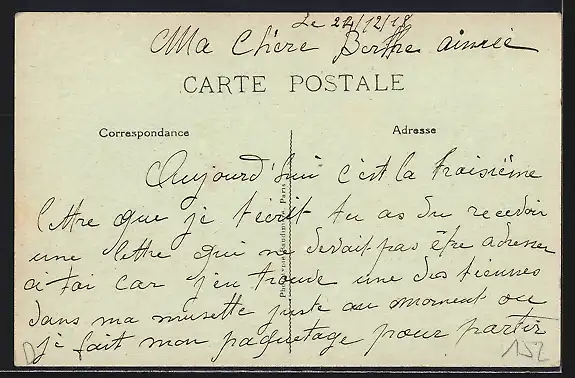 Le 24/12/18
Ma Chère Berthe aimée
CARTE POSTALE
Correspondance
Adresse
Aujourd'hui c'est la troisième
lettre que je t'écrit tu as du recevoir
une lettre qui ne devait pas être adresser
a toi car j'en trouve une des tiennes
dans ma musette juste au moment ou
je fait mon paquetage pour partir
Phototypie Baudinière, Paris
D
152